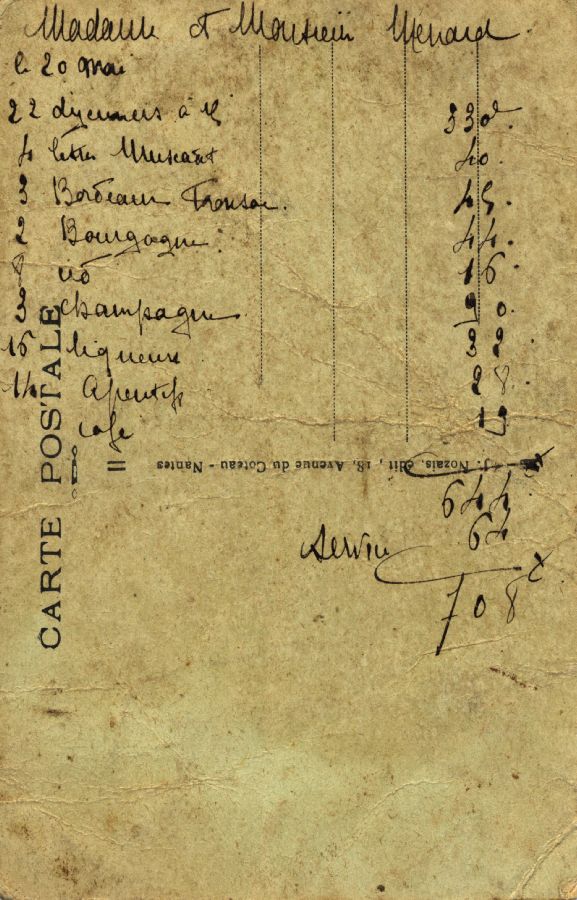 Madame et Monsieur Menard
le 20 mai
22 déjeuners à 15 330 f
4 litres Muscadet 40
3 Bordeaux Fronsac. 45.
2 Bourgogne. 44.
8 16.
3 champagne 90.
16 liqueurs 32
14 Aperitifs 28.
café 19
644
Service 64
708
CARTE POSTALE
J. Nozais, édit, 18, Avenue du Coteau - Nantes